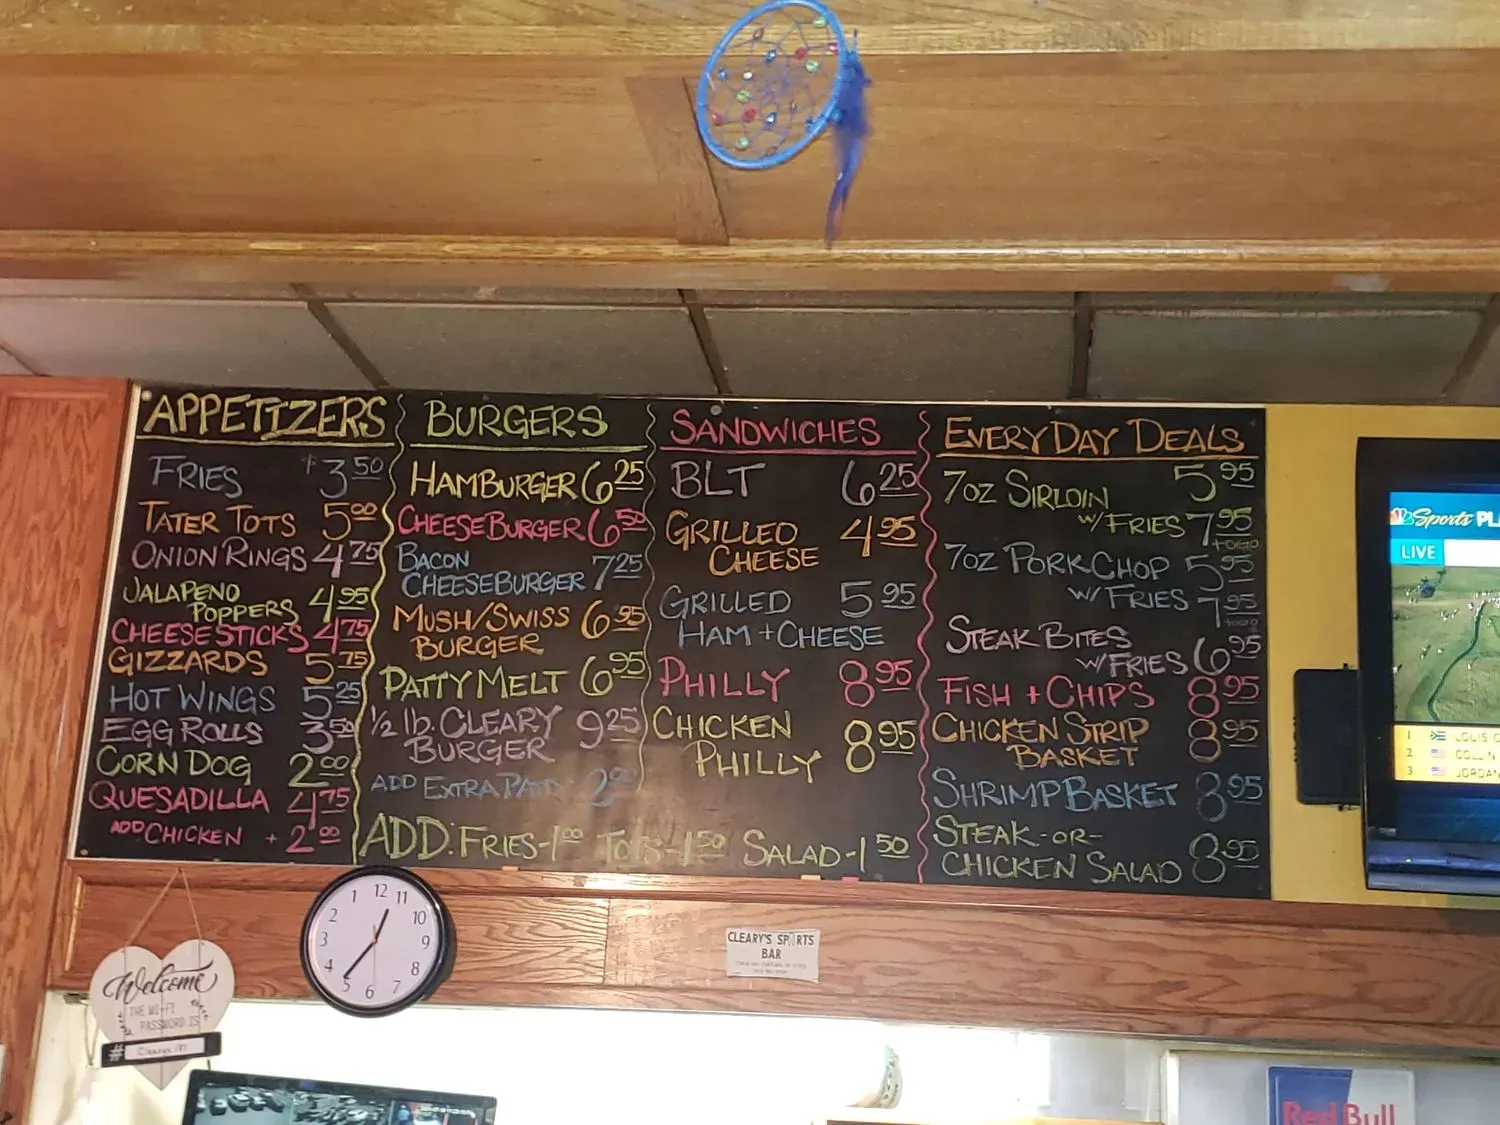 APPETIZERS
FRIES $3.50
TATER TOTS 5.00
ONION RINGS 4.75
JALAPENO
POPPERS 4.95
CHEESESTICKS 4.75
GIZZARDS 5.75
HOT WINGS 5.25
EGG ROLLS 3.50
CORN DOG 2.00
QUESADILLA 4.75
ADD CHICKEN + 2.00
BURGERS
HAMBURGER 6.25
CHEESEBURGER 6.50
BACON
CHEESEBURGER 7.25
MUSH/SWISS 6.95
BURGER
PATTY MELT 6.95
1/2 lb. CLEARY 9.25
BURGER
ADD EXTRA PATTY 2.00
SANDWICHES
BLT 6.25
GRILLED 4.95
CHEESE
GRILLED 5.95
HAM + CHEESE
PHILLY 8.95
CHICKEN
PHILLY 8.95
ADD: FRIES-1.00 TOTS-1.50 SALAD-1.50
EVERYDAY DEALS
7oz SIRLOIN 5.95
W/FRIES 7.95
+OGO
7oz PORK CHOP 5.95
W/FRIES 7.95
STEAK BITES
W/FRIES 6.95
FISH + CHIPS 8.95
CHICKEN STRIP 8.95
BASKET
SHRIMP BASKET 8.95
STEAK-OR-
CHICKEN SALAD 8.95
Sports PL
LIVE
1 LOUIS
2
3 JORDAN
12 11 10 9 8 7 6 5 4 3 2 1
CLEARY'S SPORTS
BAR
Welcome
THE WI-FI
PASSWORD IS
#
Red Bull